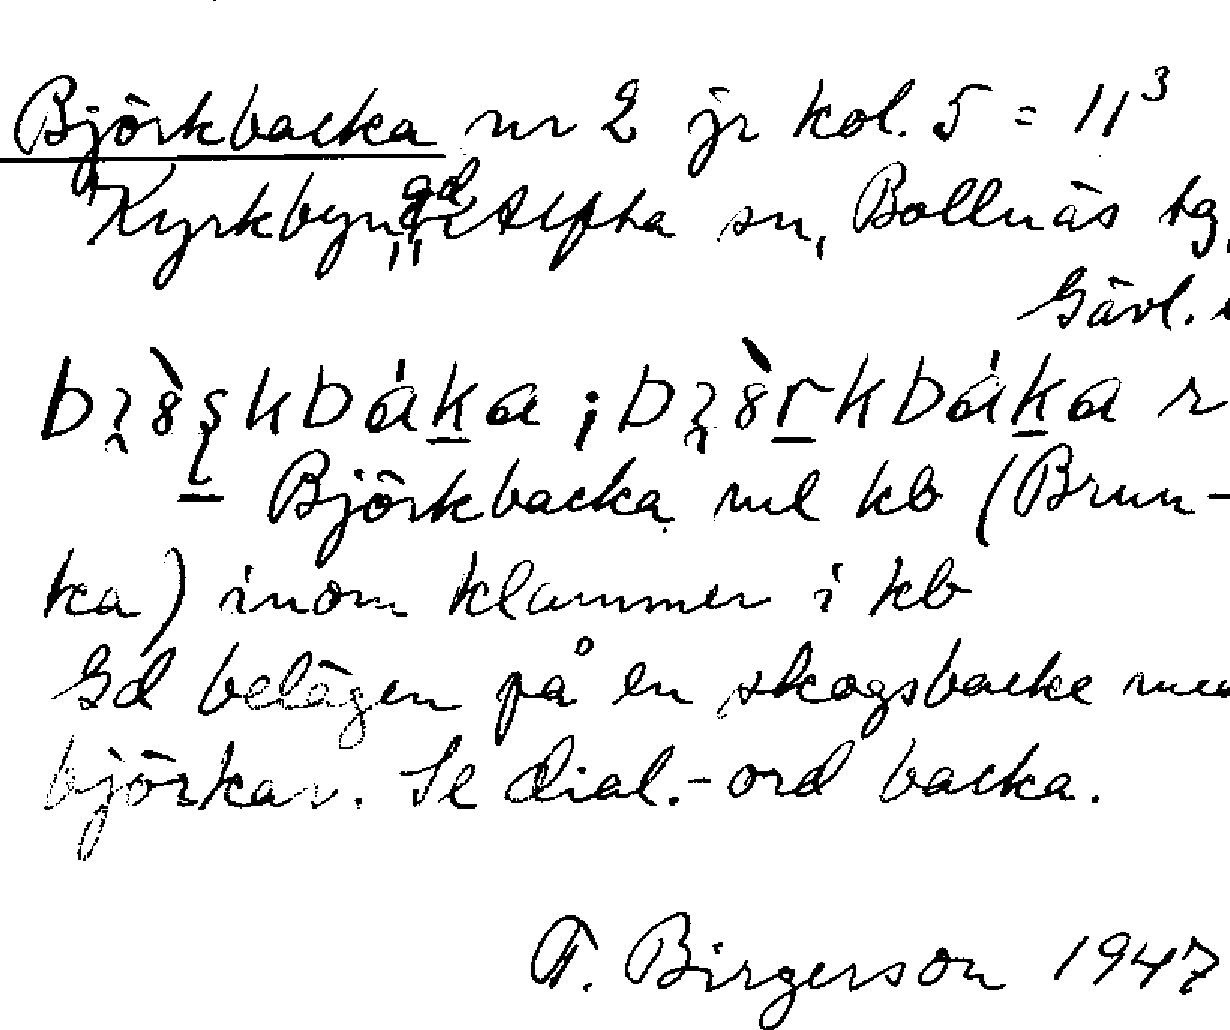 Björkbacka nr 2 jr kol. 5 = 11³
Kyrkbyn, gd i Alfta sn, Bollnäs tg,
Gävl.
Björkbacka enl kb (Brun-
ka) inom klammer i kb
Gd belägen på en skogsbacke med
björkar. Se dial.-ord backa.
F. Birgerson 1947